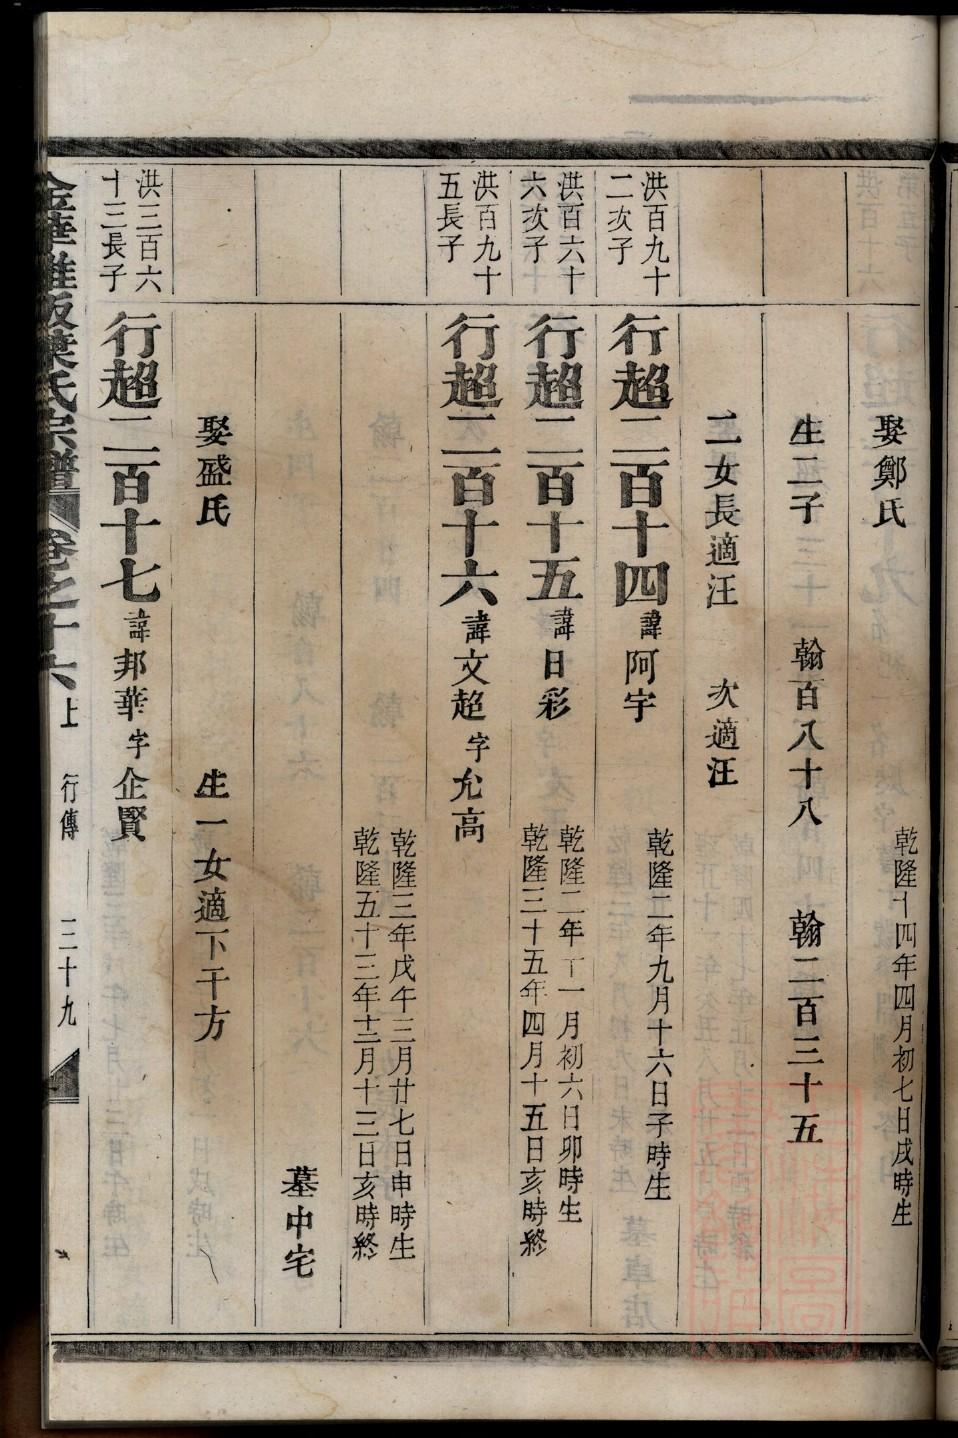 娶鄭氏
乾隆十四年四月初七日戌時生
生二子 翰百八十八 翰二百三十五
二女長適汪 次適汪
洪百九十
二次子
行超二百十四 諱阿宇
乾隆二年九月十六日子時生
洪百六十
六次子
行超二百十五 諱日彩
乾隆二年十一月初六日卯時生
乾隆三十五年四月十五日亥時終
洪百九十
五長子
行超二百十六 諱文超 字允高
乾隆三年戊午三月廿七日申時生
乾隆五十三年十二月十三日亥時終
墓中宅
娶盛氏 生一女適下干方
洪三百六
十三長子
行超二百十七 諱邦華 字企賢
氏宗譜 卷之十六 上 行傳 三十九